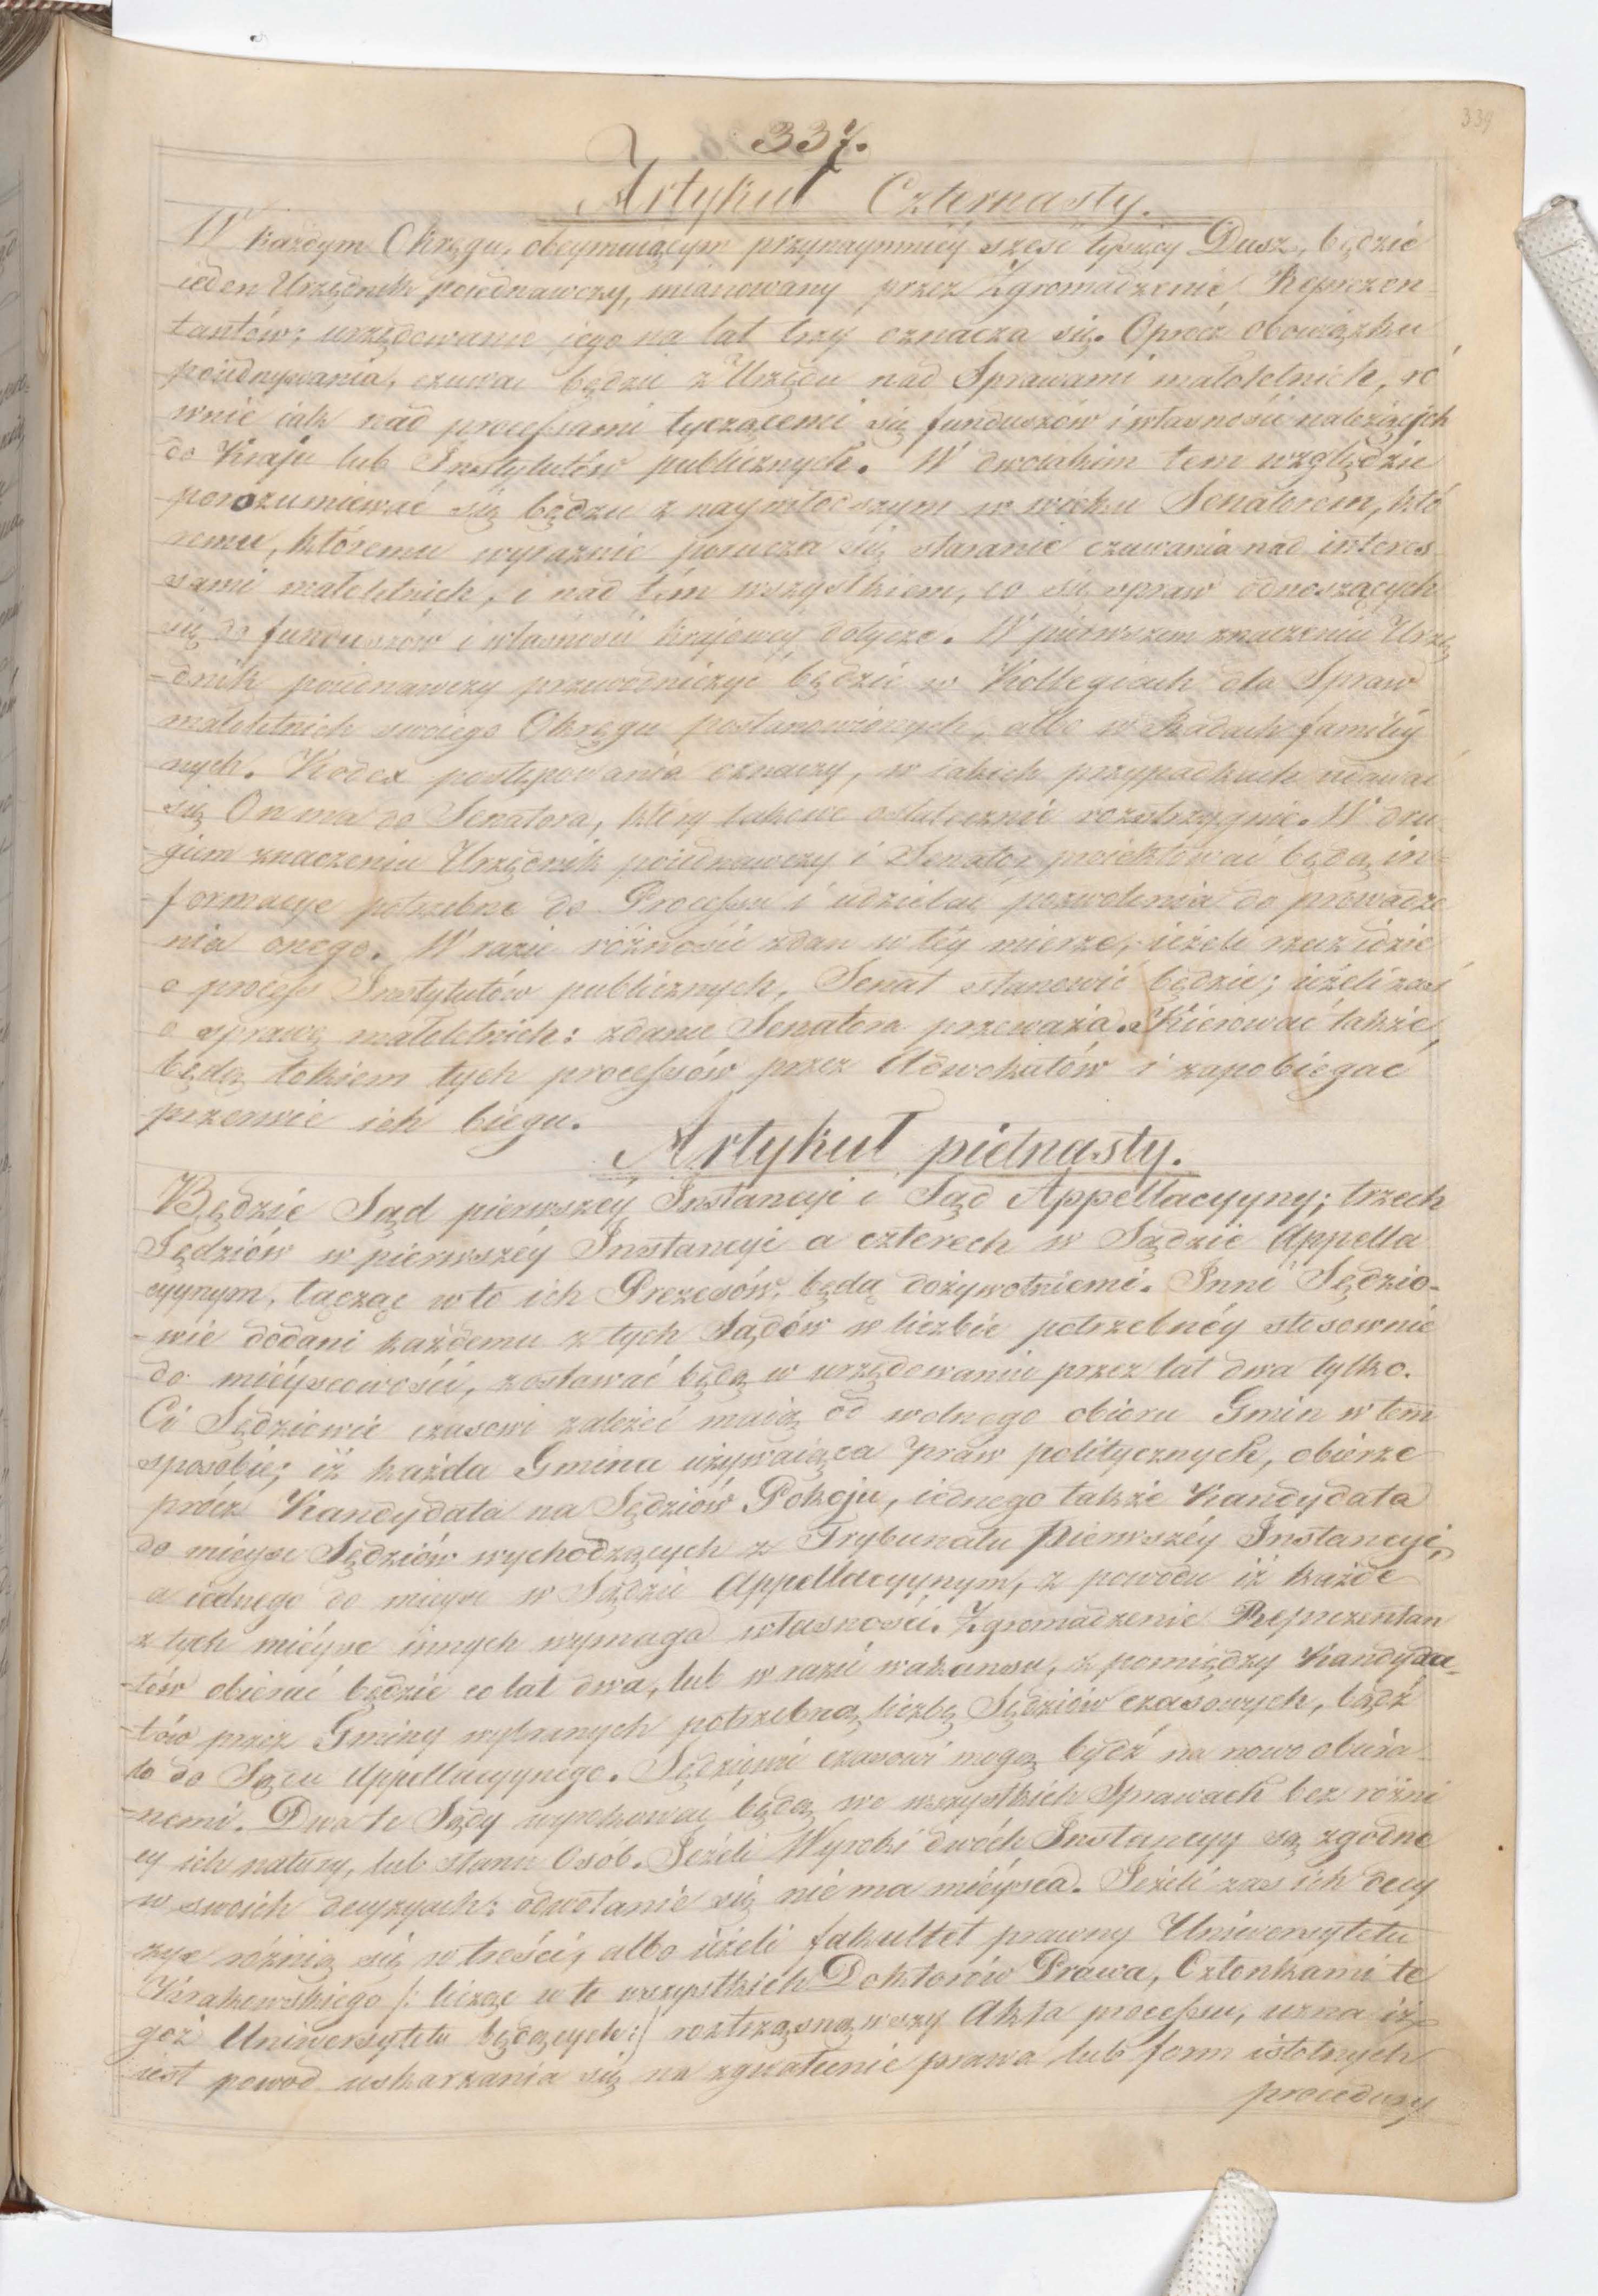 339
337.
Artykuł Czternasty.
W każdym Okręgu, obeymuiącym przynaymniey sześć tysięcy Dusz, będzie
ieden Urzędnik poiednawczy, mianowany przez Zgromadzenie Reprezen-
tantów; urzędowanie jego na lat trzy oznacza się. Oprócz obowiązku
poiednywania, czuwać będzie z Urzędu nad Sprawami małoletnich, ró
wnie iak nad processami tyczącemi się funduszów i własności należących
do Kraju lub Instytutów publicznych. W dwoiakim tem względzie
porozumiewać się będzie z naymłodszym w wieku Senatorem, któ
remu, któremu wyraźnie porucza się staranie czuwania nad interes
sami małoletnich, i nad tém wszystkiem, co się spraw odnoszących
się do funduszów i własności krajowey dotycze. W pierwszem znaczeniu Urzę
-dnik poiednawczy przewodniczyć będzie w Kollegiach dla Spraw
małoletnich swoiego Okręgu postanowionych, albo w Radach familiy
nych. Kodex postępowania oznaczy, w iakich przypadkach udawać
się On ma do Senatora, który takowe ostatecznie rozstrzygnie. W dru
giem znaczeniu Urzędnik poiednawczy i Senator proiektować będą in-
formacye potrzebne do Processu i udzielać pozwolenia do prowadze
nia onego. W razie różności zdań w téy mierze, ieżeli rzecz idzie
o process Instytutów publicznych, Senat stanowić będzie; ieżeli zaś
o sprawę małoletnich: zdanie Senatora przeważa. Kierować także,
będą tokiem tych processów przez Adwokatów i zapobiegać
przerwie ich biegu.
Artykuł pietnasty.
Będzie Sąd pierwszey Instancyi i Sąd Appellacyyny; trzech
Sędziów w pierwszéy Instancyi a czterech w Sądzie Appella
cyynym, łącząc w to ich Prezesów, będą dożywotniemi. Inni Sędzio-
-wie dodani każdemu z tych Sądów w liczbie potrzebnéy stosownie
do mieyscowości, zostawać będą w urzędowaniu przez lat dwa tylko.
Ci Sędziowie czasowi zależeć maią od wolnego obioru Gmin w tem
sposobie; iż każda Gmina używaiąca praw politycznych, obierze
prócz Kandydata na Sędziów Pokoju, iednego także Kandydata
do mieysc Sędziów wychodzących z Trybunału pierwszéy Instancyi,
a iednego do mieysc w Sądzie Appellacyynym, z powodu iż każde
z tych mieysc innych wymaga własności. Zgromadzenie Reprezentan
-tów obierać będzie co lat dwa, lub w razie wakansu, z pomiędzy Kandyda-
-tów przez Gminy wybranych potrzebną liczbę Sędziów czasowych, bądź
to do Sądu Appellacyynego. Sędziowie czasowi mogą bydź na nowo obiera-
-nemi. Dwa te Sądy wyrokować będą we wszystkich Sprawach bez różni
cy ich natury, lub stanu Osób. Jeżeli Wyroki dwóch Instancyy są zgodne
w swoich decyzyach: odwołanie się nie ma mieysca. Jeżeli zaś ich decy
zye różnią się w treści, albo ieżeli fakultet prawny Uniwersytetu
Krakowskiego /: licząc w to wszystkich Doktorów Prawa, Członkami te
goż Uniwersytetu będących:/ roztrząsnąwszy Akta processu, uzna iż
iest powód uskarżania się na zgwałcenie prawa lub form istotnych
procedury